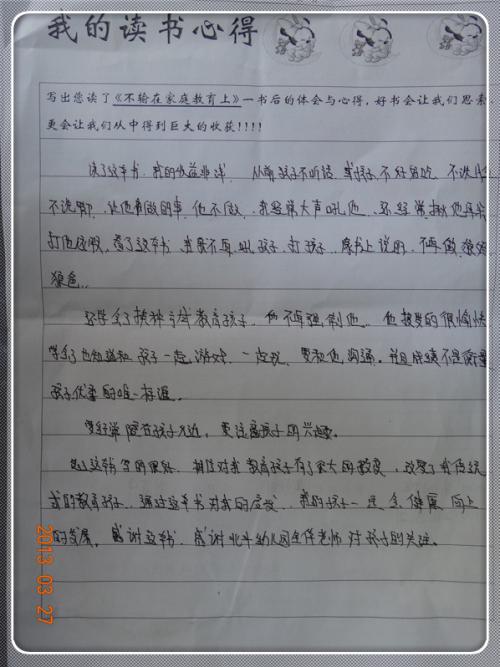 我的读书心得
写出您读了《不输在家庭教育上》一书后的体会与心得,好书会让我们思索
更会让我们从中得到巨大的收获!!!!
读了这本书,我的收益非浅 从前孩子不听话,我孩子不好好吃,不洗
不洗脚,让他有做的事,他不做,我经常大声吼他、还经常揪他耳朵
打他屁股,看了这本书 我再不再吼孩子,打孩子,像书上说的,不再做狼
狼爸..
还学会了 教育孩子,再不再强制他.. 他接受的很愉快
学会了 和孩子一起游戏,一起玩,要和他沟通。并且成绩不是衡量
孩子优秀的唯一标准。
要经常陪在孩子左近,更注意孩子的兴趣。
这本书 相信对我教育孩子有了更大的 改变了我传统
式的教育孩子.. 通过这本书对我的启发 我的孩子一定会健康 向上
的发展,感谢这本书,感谢北斗幼儿园全体老师对孩子的关注。
2013 03 27